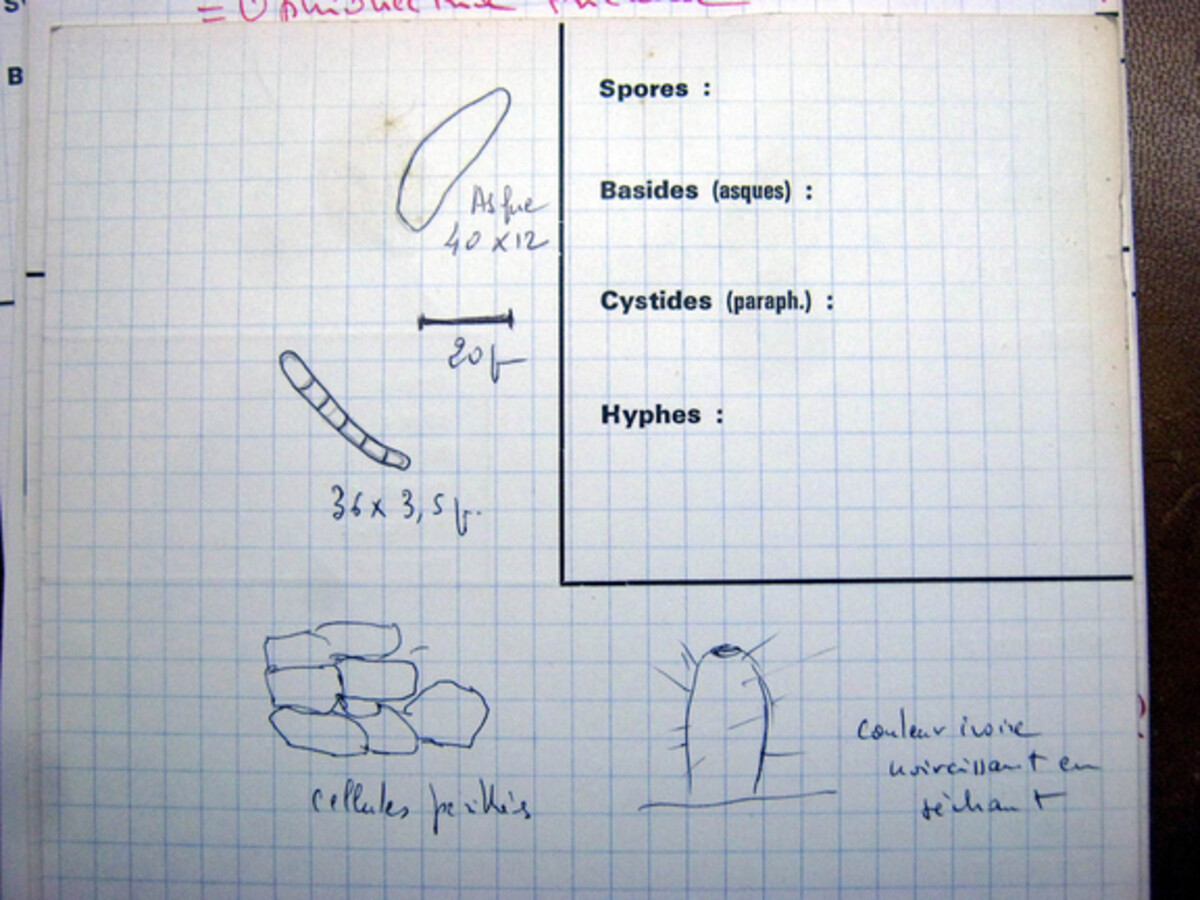 =
B
Asque
40 x 12
20 µ
36 x 3,5 µ.
Spores :
Basides (asques) :
Cystides (paraph.) :
Hyphes :
cellules
couleur ivoire
noircissant en
séchant